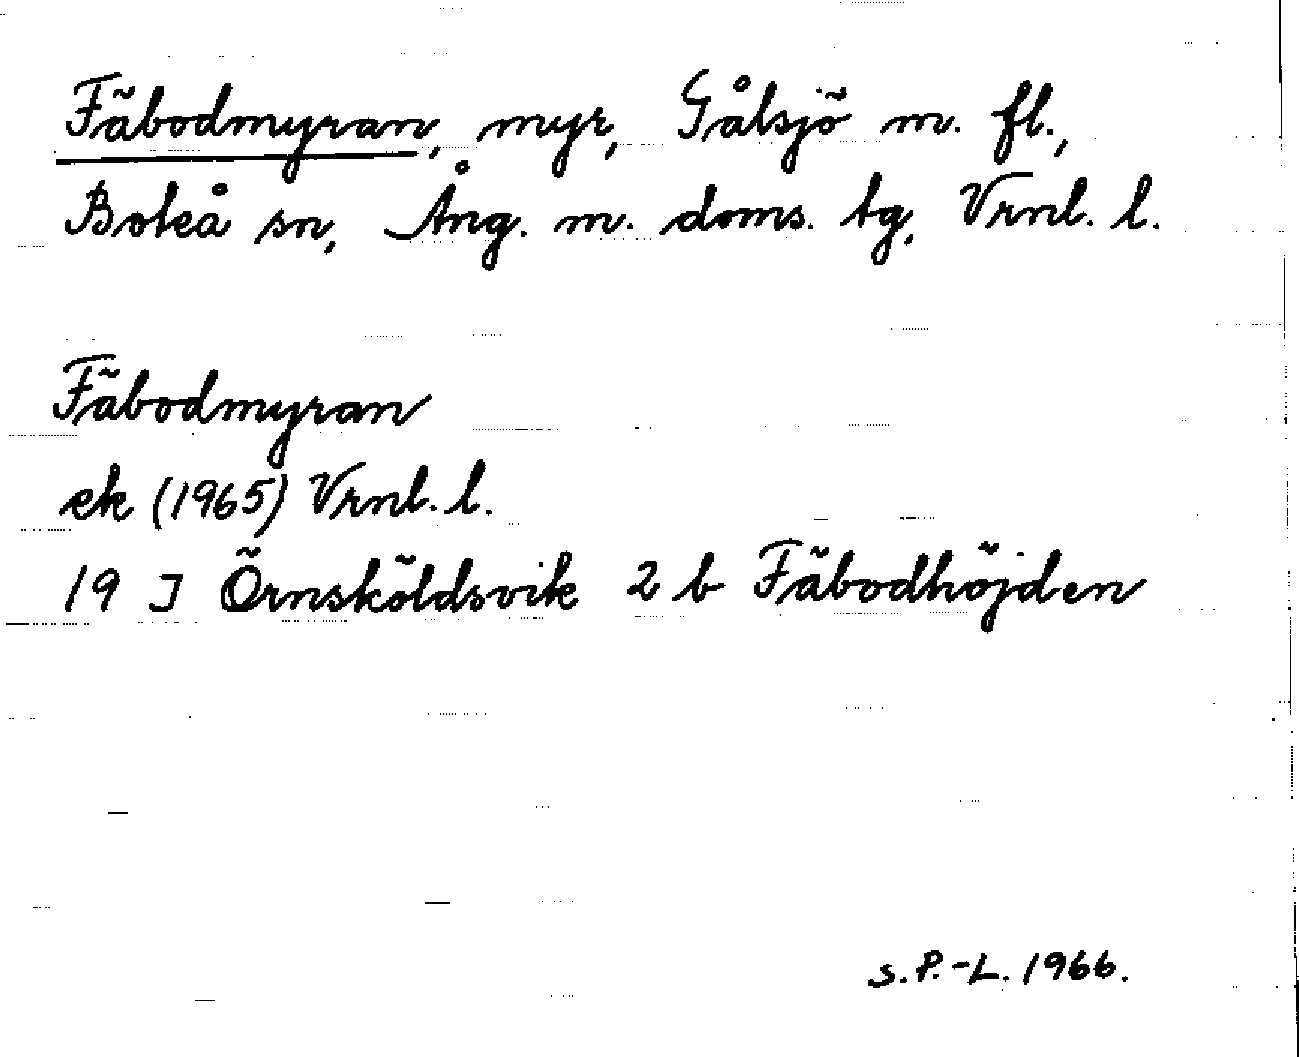 Fäbodmyran, myr, Gålsjö m. fl.,
Boteå sn, Ång. m. doms. tg, Vrnl. l.
Fäbodmyran
ek (1965) Vrnl. l.
19 J Örnsköldsvik 2 b Fäbodhöjden
S. P.-L. 1966.